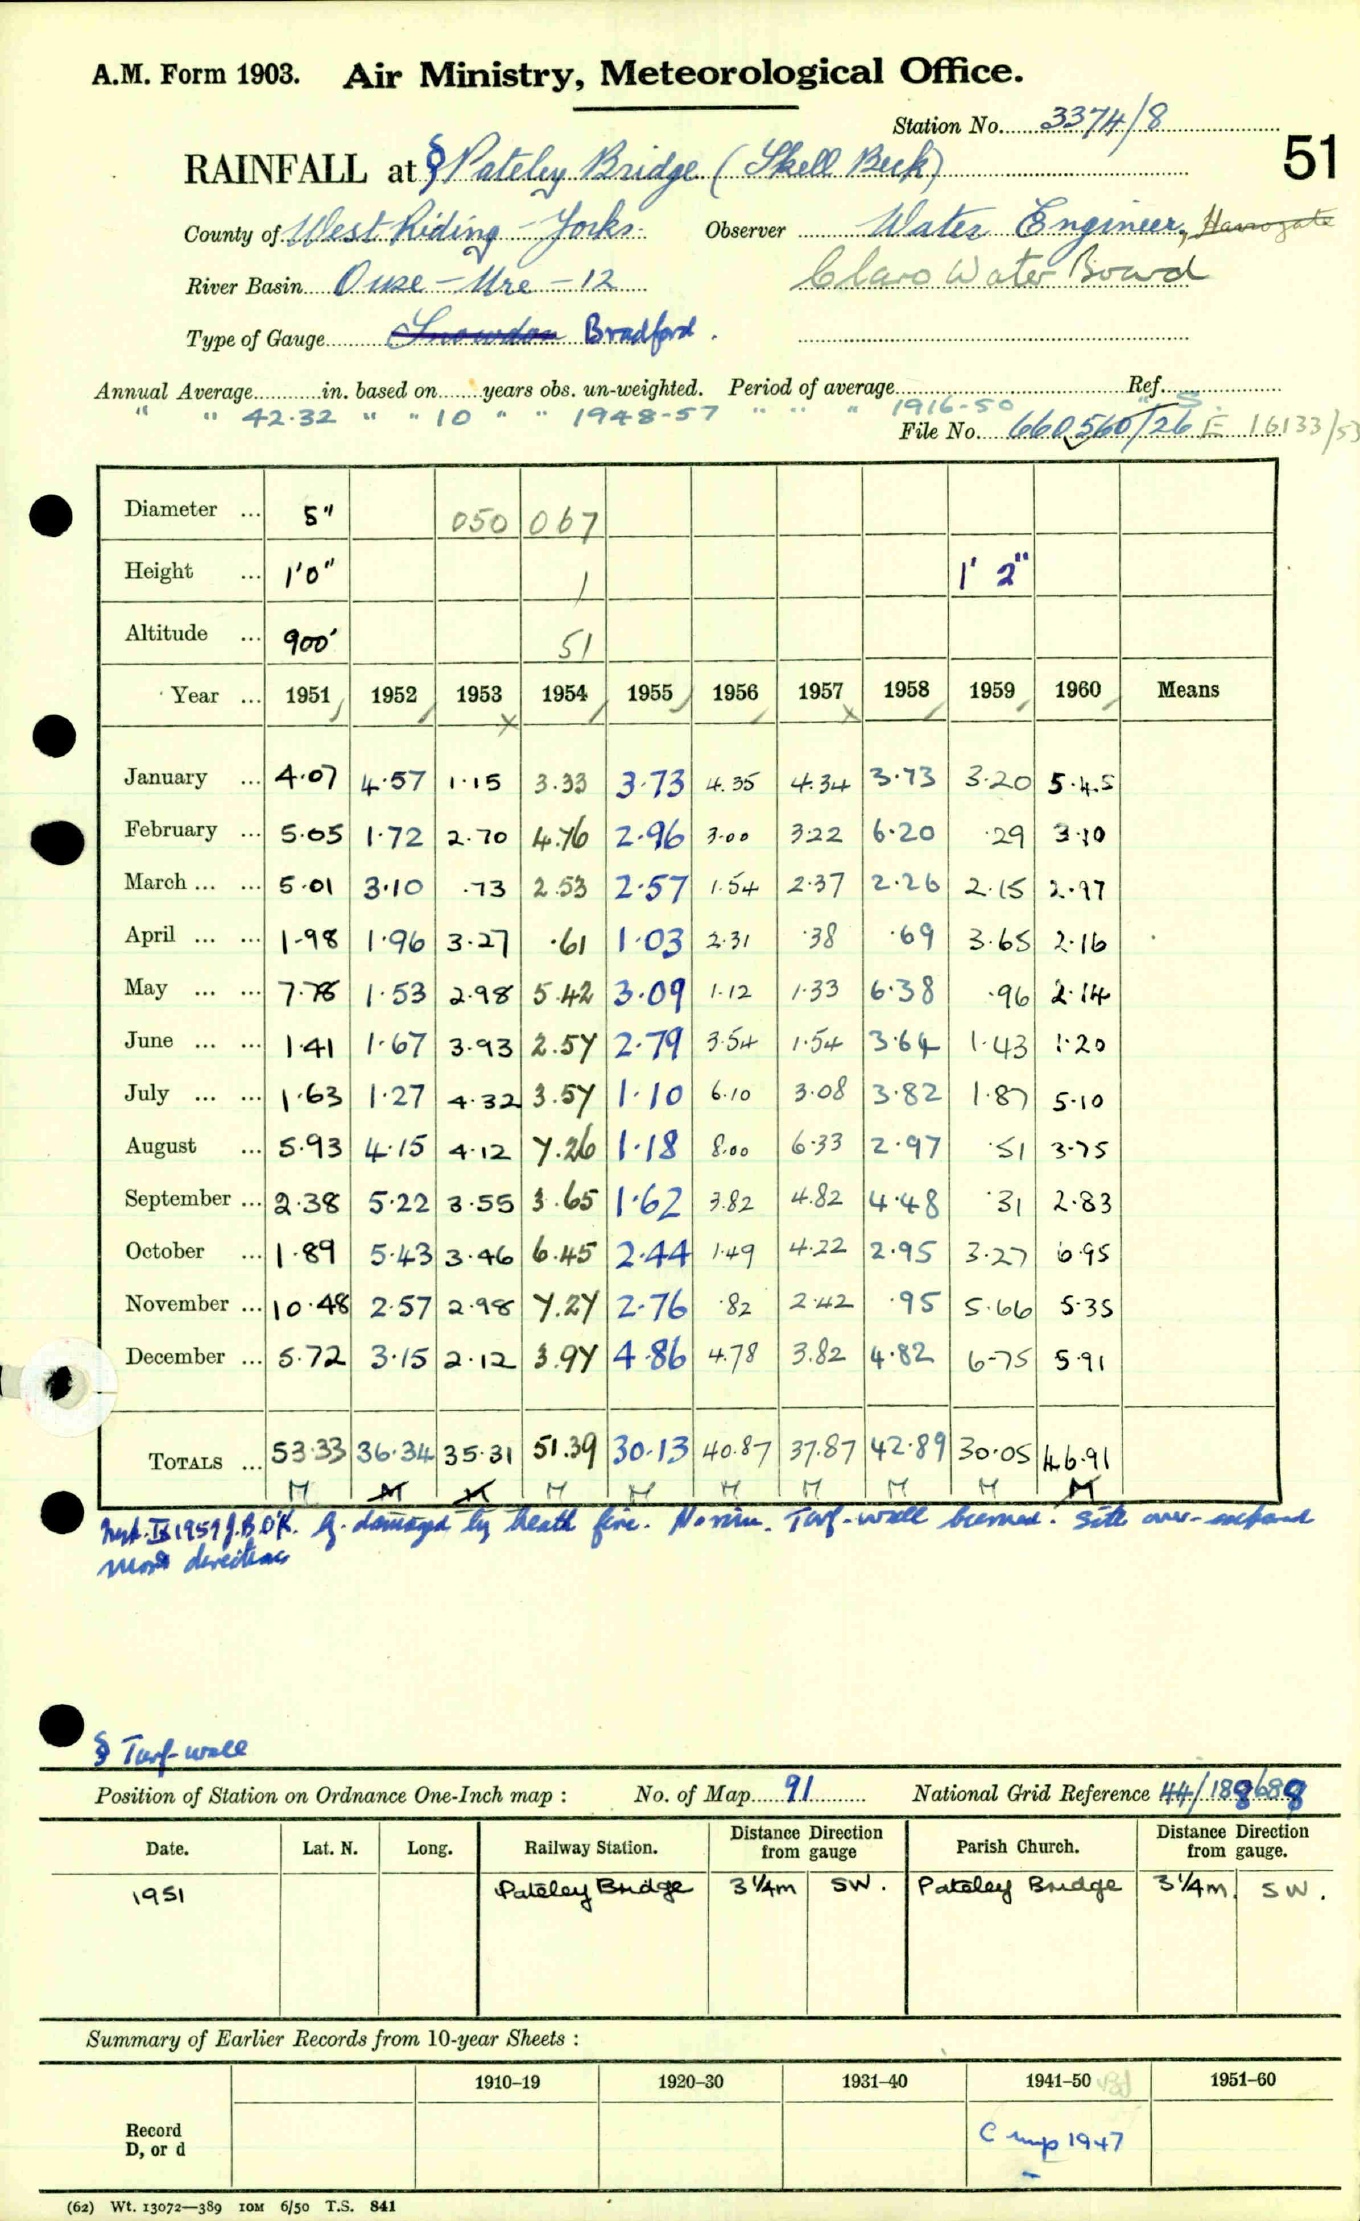 A.M. Form 1903. Air Ministry, Meteorological Office.
Station No. 3374/8
51
RAINFALL at § Pateley Bridge (Skell Beck)
County of West Riding - Yorks. Observer Water Engineer, Harrogate
Claro Water Board
River Basin Ouse - Ure - 12
Type of Gauge Snowdon Bradford.
Annual Average in. based on years obs. un-weighted. Period of average Ref.
" " 42.32 " " 10 " " 1948-57 " " " 1916-50 " S.
File No. 660560/26 E 16133/53
Diameter ... 5" 050 067
Height ... 1'0" 1 1' 2"
Altitude ... 900' 51
Year ... 1951 1952 1953 1954 1955 1956 1957 1958 1959 1960 Means
January ... 4.07 4.57 1.15 3.33 3.73 4.35 4.34 3.73 3.20 5.45
February ... 5.05 1.72 2.70 4.76 2.96 3.00 3.22 6.20 .29 3.10
March ... ... 5.01 3.10 .73 2.53 2.57 1.54 2.37 2.26 2.15 2.97
April ... ... 1.98 1.96 3.27 .61 1.03 2.31 .38 .69 3.65 2.16
May ... ... 7.78 1.53 2.98 5.42 3.09 1.12 1.33 6.38 .96 2.14
June ... ... 1.41 1.67 3.93 2.57 2.79 3.54 1.54 3.64 1.43 1.20
July ... ... 1.63 1.27 4.32 3.57 1.10 6.10 3.08 3.82 1.87 5.10
August ... 5.93 4.15 4.12 7.26 1.18 8.00 6.33 2.97 .51 3.75
September ... 2.38 5.22 3.55 3.65 1.62 3.82 4.82 4.48 .31 2.83
October ... 1.89 5.43 3.46 6.45 2.44 1.49 4.22 2.95 3.27 6.95
November ... 10.48 2.57 2.98 7.27 2.76 .82 2.42 .95 5.66 5.35
December ... 5.72 3.15 2.12 3.97 4.86 4.78 3.82 4.82 6.75 5.91
TOTALS ... 53.33 36.34 35.31 51.39 30.13 40.87 37.87 42.89 30.05 46.91
M M M M M M M M M M
IX 1959 J.B.O'K. G. damaged by heath fire. No rim. Turf-wall burned. Site over-exposed
most directions
§ Turf-wall
Position of Station on Ordnance One-Inch map : No. of Map 91 National Grid Reference 44/188688
Date. Lat. N. Long. Railway Station. Distance Direction from gauge Parish Church. Distance Direction from gauge.
1951 Pateley Bridge 3¼m SW. Pateley Bridge 3¼m. SW.
Summary of Earlier Records from 10-year Sheets :
1910–19 1920–30 1931–40 1941–50 1951–60
Record D, or d C 1947
(62) Wt. 13072—389 10M 6/50 T.S. 841